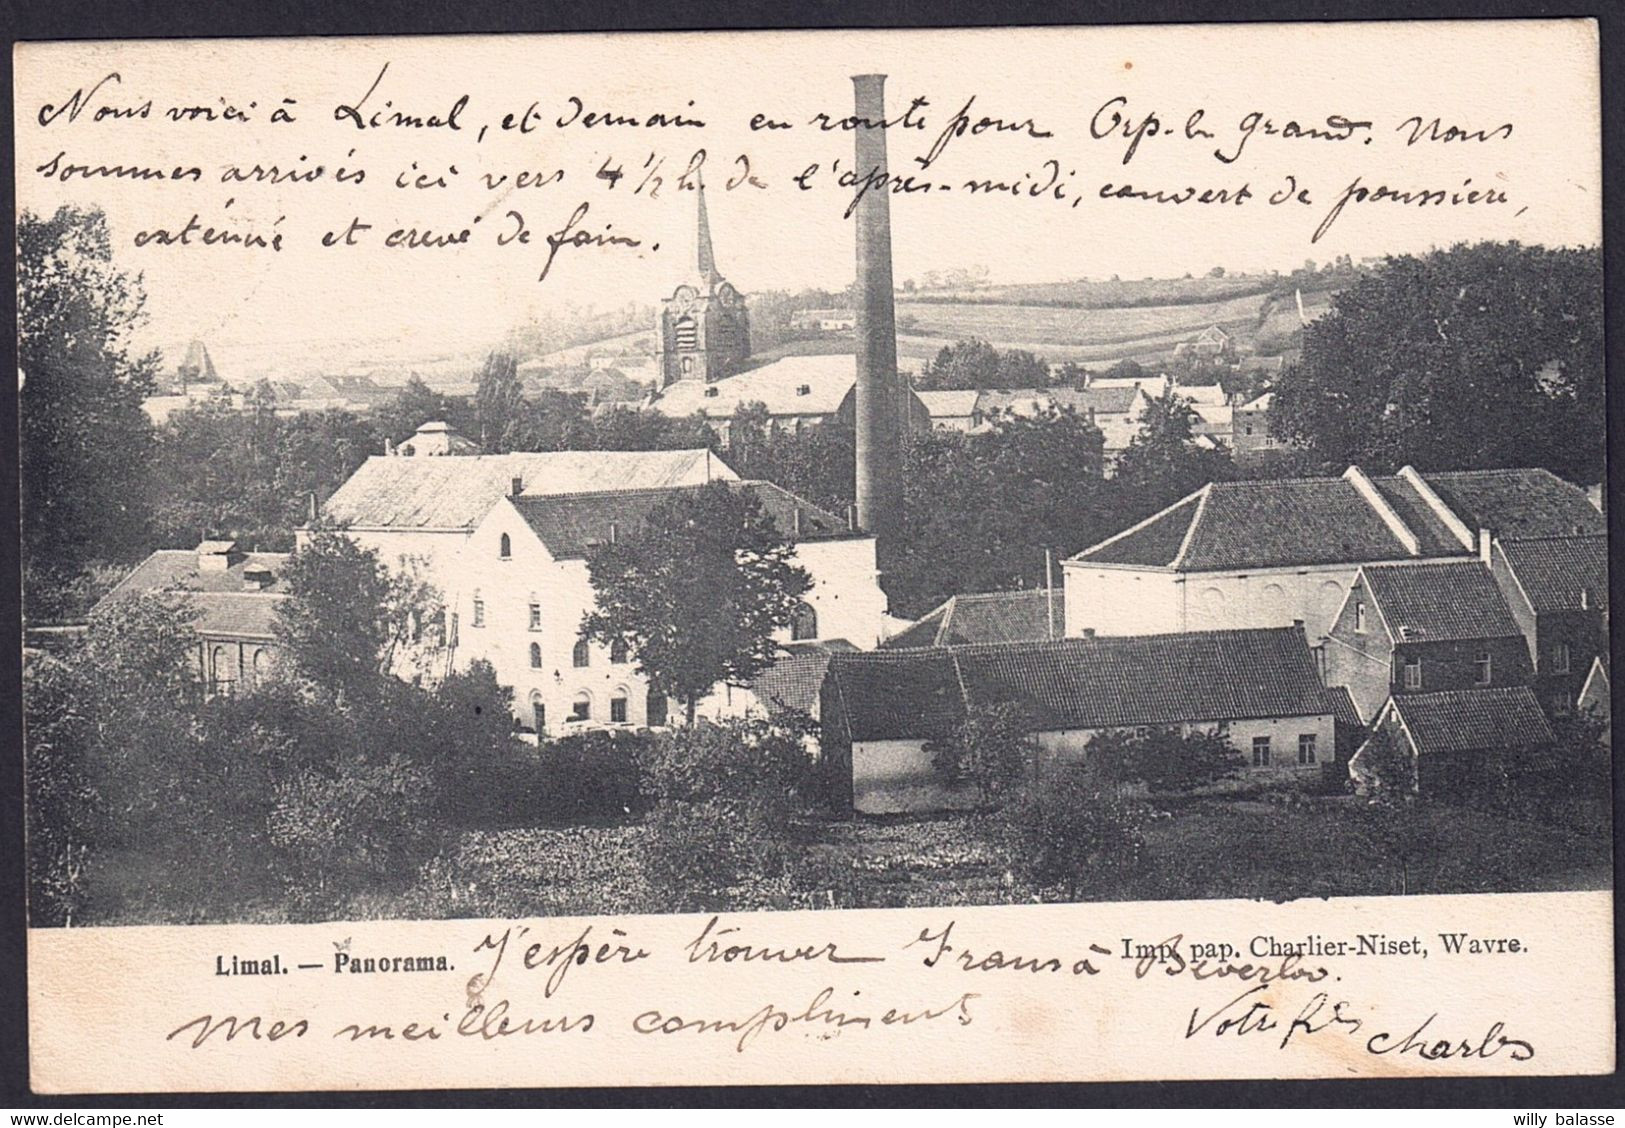 Nous voici à Limal, et demain en route pour Orp-le grand. Nous
sommes arrivés ici vers 4 1/2 h. de l'après-midi, couvert de poussière,
exténué et crevé de faim.
Limal. — Panorama.
Imp. pap. Charlier-Niset, Wavre.
J'espère trouver Frans à Beverloo.
Mes meilleurs compliments
Votre fils Charles
willy balasse